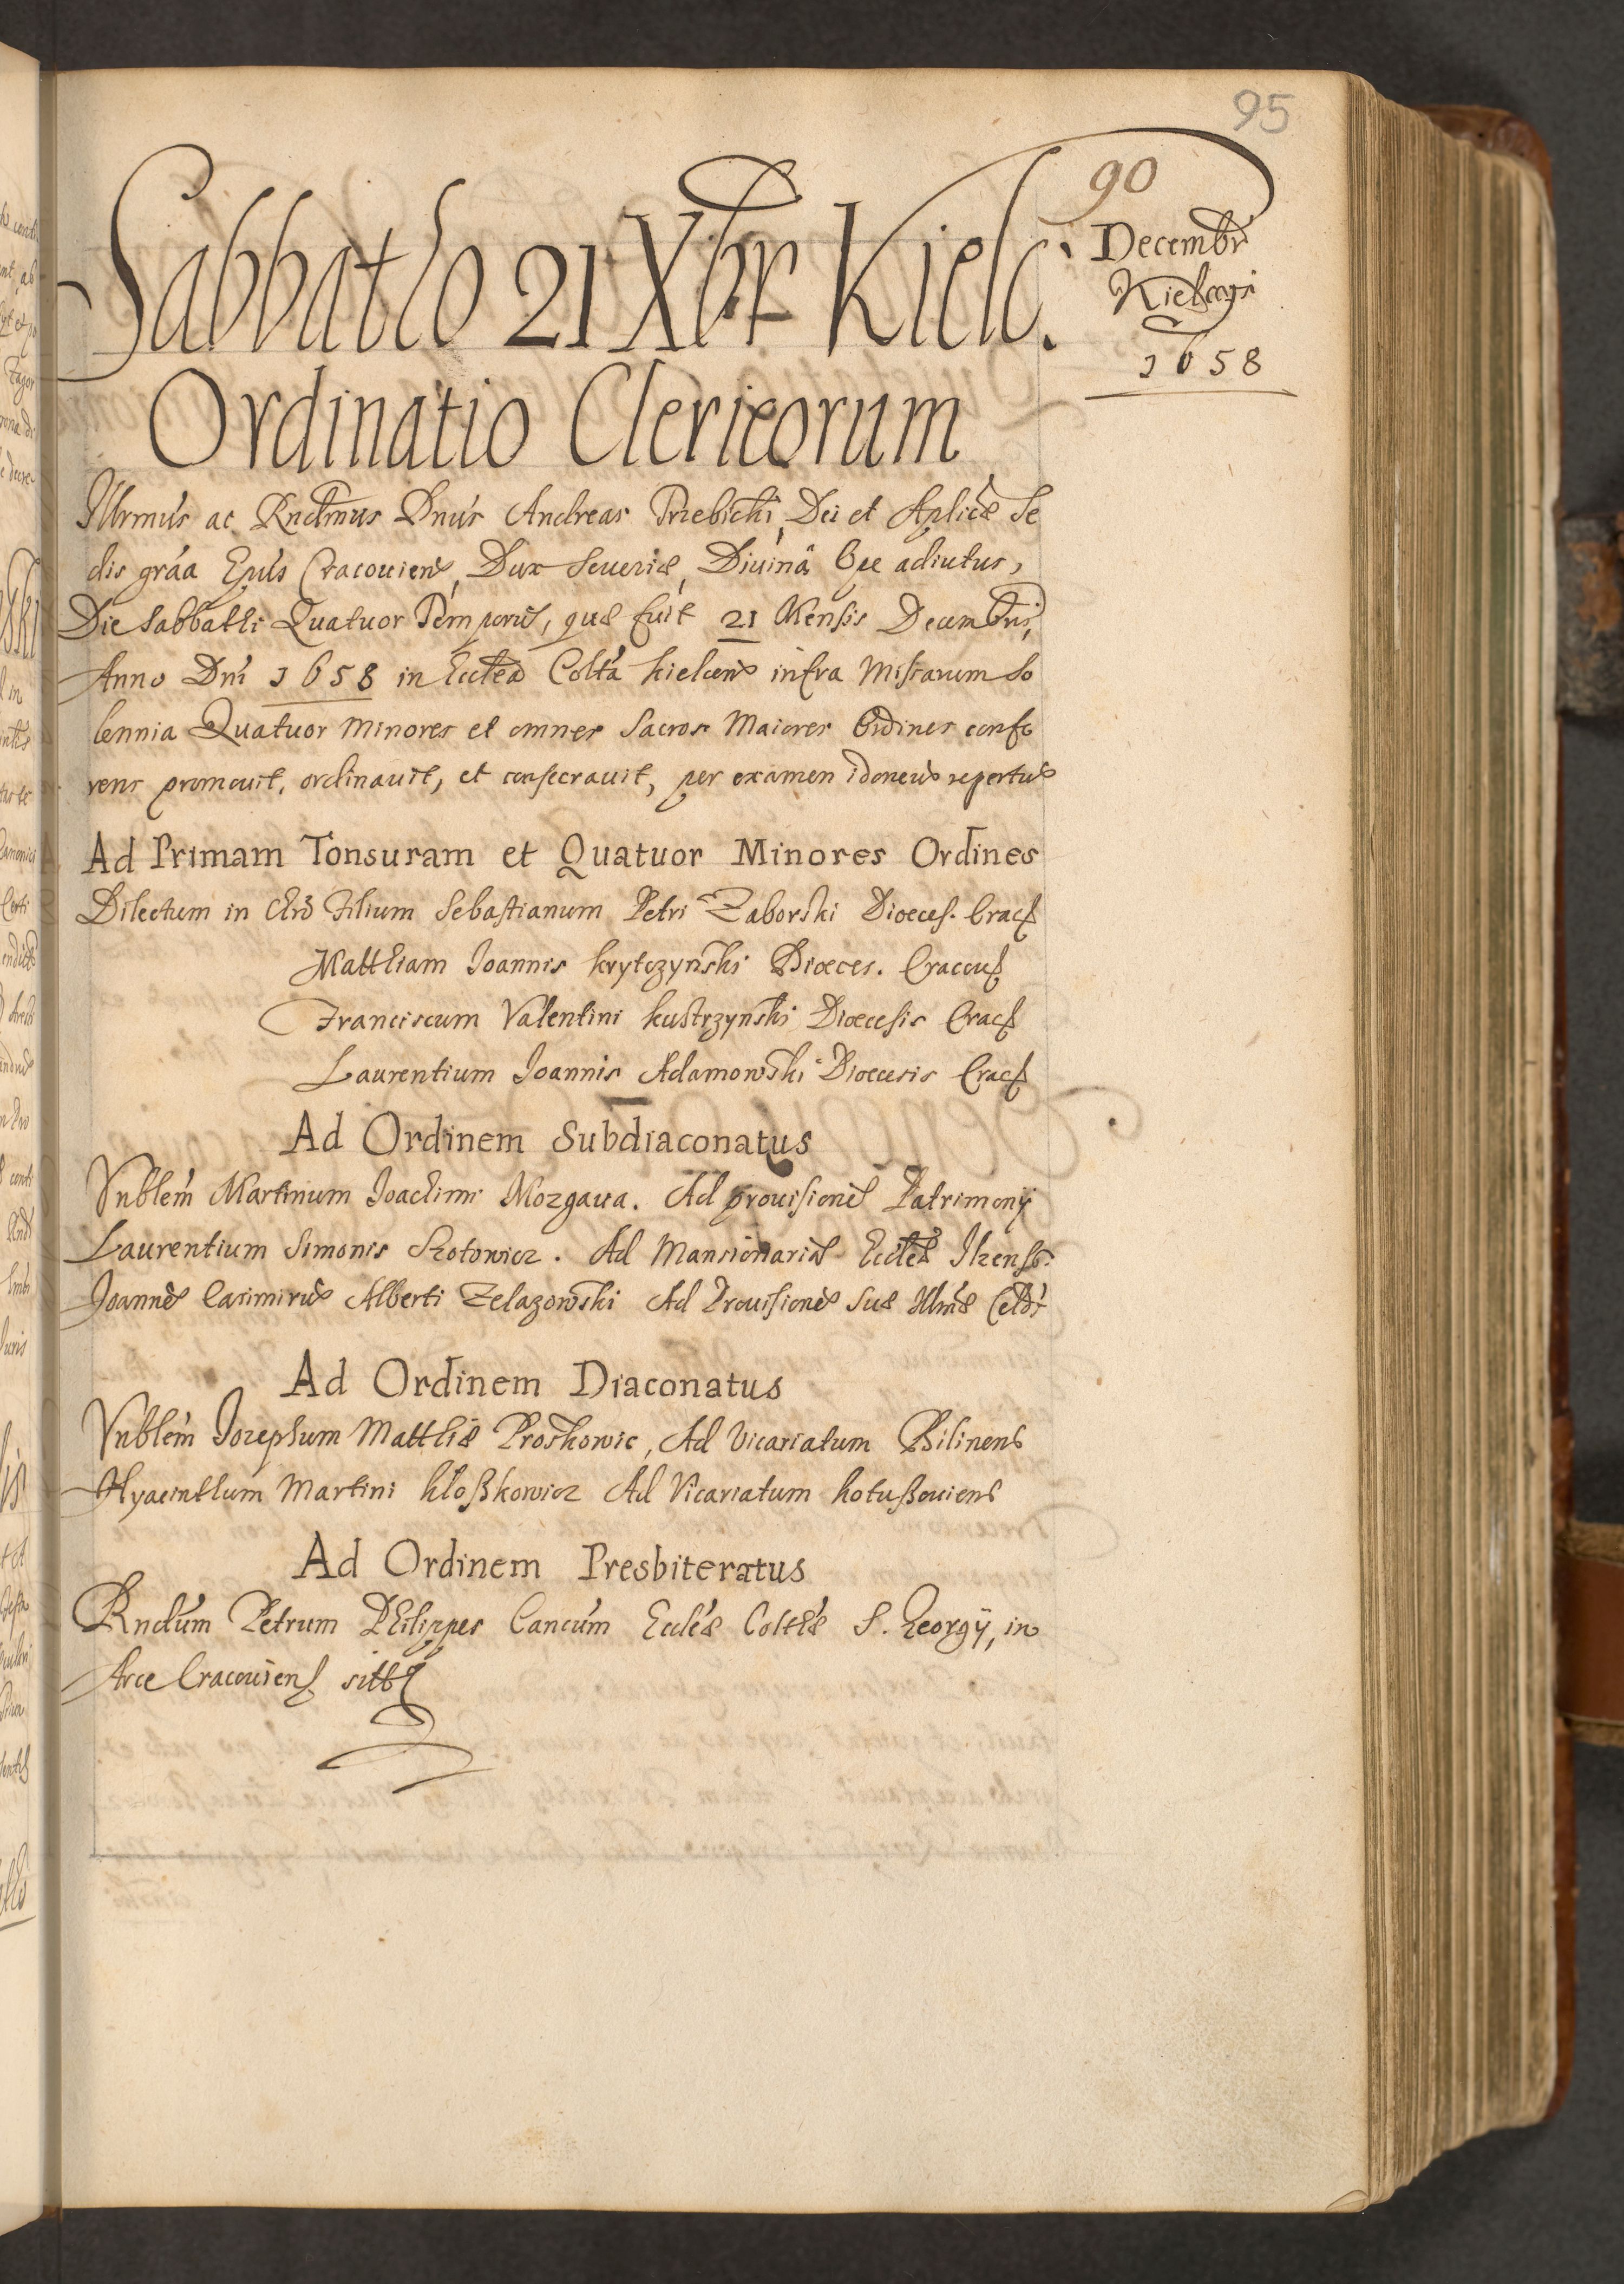 95
90
Decembr
Kielcensi
1658
Sabbatho 21 Xbr Kielc.
Ordinatio Clericorum
Illrmus ac Rndmus Dnus Andreas Trzebicki, Dei et Aplicæ Se
dis gráa Epús Cracouiens, Dux Seueriæ, Diuinâ Ope adiutus,
Die Sabbathi Quatuor Témporũ, quæ fuit 21 Mensis Decembris,
Anno Dni 1658 in Ecclea Colta Kielcens infra Missarum So
lennia Quatuor Minores et omnes Sacros Maiores Ordines confe
rens promouit, ordinauit, et consecrauit, per examen idoneos repertos
Ad Primam Tonsuram et Quatuor Minores Ordines
Dilectum in Chro Filium Sebastianum Petri Zaborski Dioeces. Crac
Matthiam Joannis Krytczynski Dioeces. Cracou
Franciscum Valentini Kustrzynski Dioecesis Crac
Laurentium Joannis Adamowski Dioecesis Crac
Ad Ordinem Subdiaconatus
Vnblem Martinum Joachimi Mozgawa. Ad prouisione Patrimonij
Laurentium Simonis Szotowicz. Ad Mansionaria Eccleæ Ilzens
Joanne Casimiru Alberti Zelazowski Ad Prouisione Suæ Illmæ Celds
Ad Ordinem Diaconatus
Vnblem Josephum Matthiæ Proskowic, Ad Vicariatum Bilinens
Hyacinthum Martini Kłoßkowicz Ad Vicariatum Kotußouiens
Ad Ordinem Presbiteratus
Rndum Petrum Philippes Cancum Eccléæ Coltæ S. Georgij, in
Arce Cracouiens sitæ